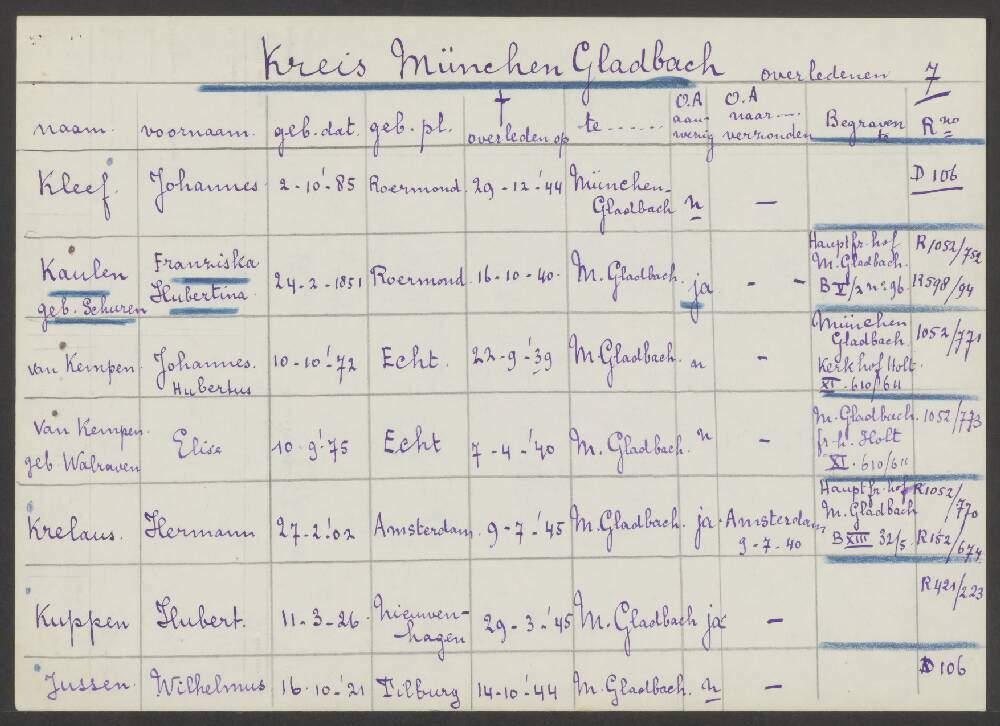 Kreis München Gladbach overledenen 7
naam. voornaam. geb. dat. geb. pl. † overleden op te ...... O.A aanwezig O.A naar .... verzonden Begraven te R no
Kleef. Johannes 2-10-'85 Roermond. 29-12-'44 München-Gladbach n — D 106
Kaulen geb. Schuren Franziska Hubertina 24-2-1851 Roermond 16-10-40. M. Gladbach. ja - - Hauptfr. hof M. Gladbach. B V/2 no. 96 R1052/752 R598/94
van Kempen Johannes. Hubertus 10-10-'72 Echt. 22-9-'39 M. Gladbach. n — München Gladbach Kerkhof Holt. XI. 610/611 1052/771
van Kempen. geb. Walraven Elise 10-9-'75 Echt 7-4-'40 M. Gladbach. n — M. Gladbach. fr. h. Holt XI. 610/611 1052/773
Krelaus. Hermann 27-2-'02 Amsterdam. 9-7-'45 M. Gladbach. ja. Amsterdam 9-7-40 Hauptfr. hof M. Gladbach B XIII 32/5 R1052/770 R152/674
Kuppen Hubert. 11-3-26. Nieuwenhagen 29-3-'45 M. Gladbach ja — R421/223
Jussen. Wilhelmus 16-10-'21 Tilburg 14-10-'44 M. Gladbach. n — D 106